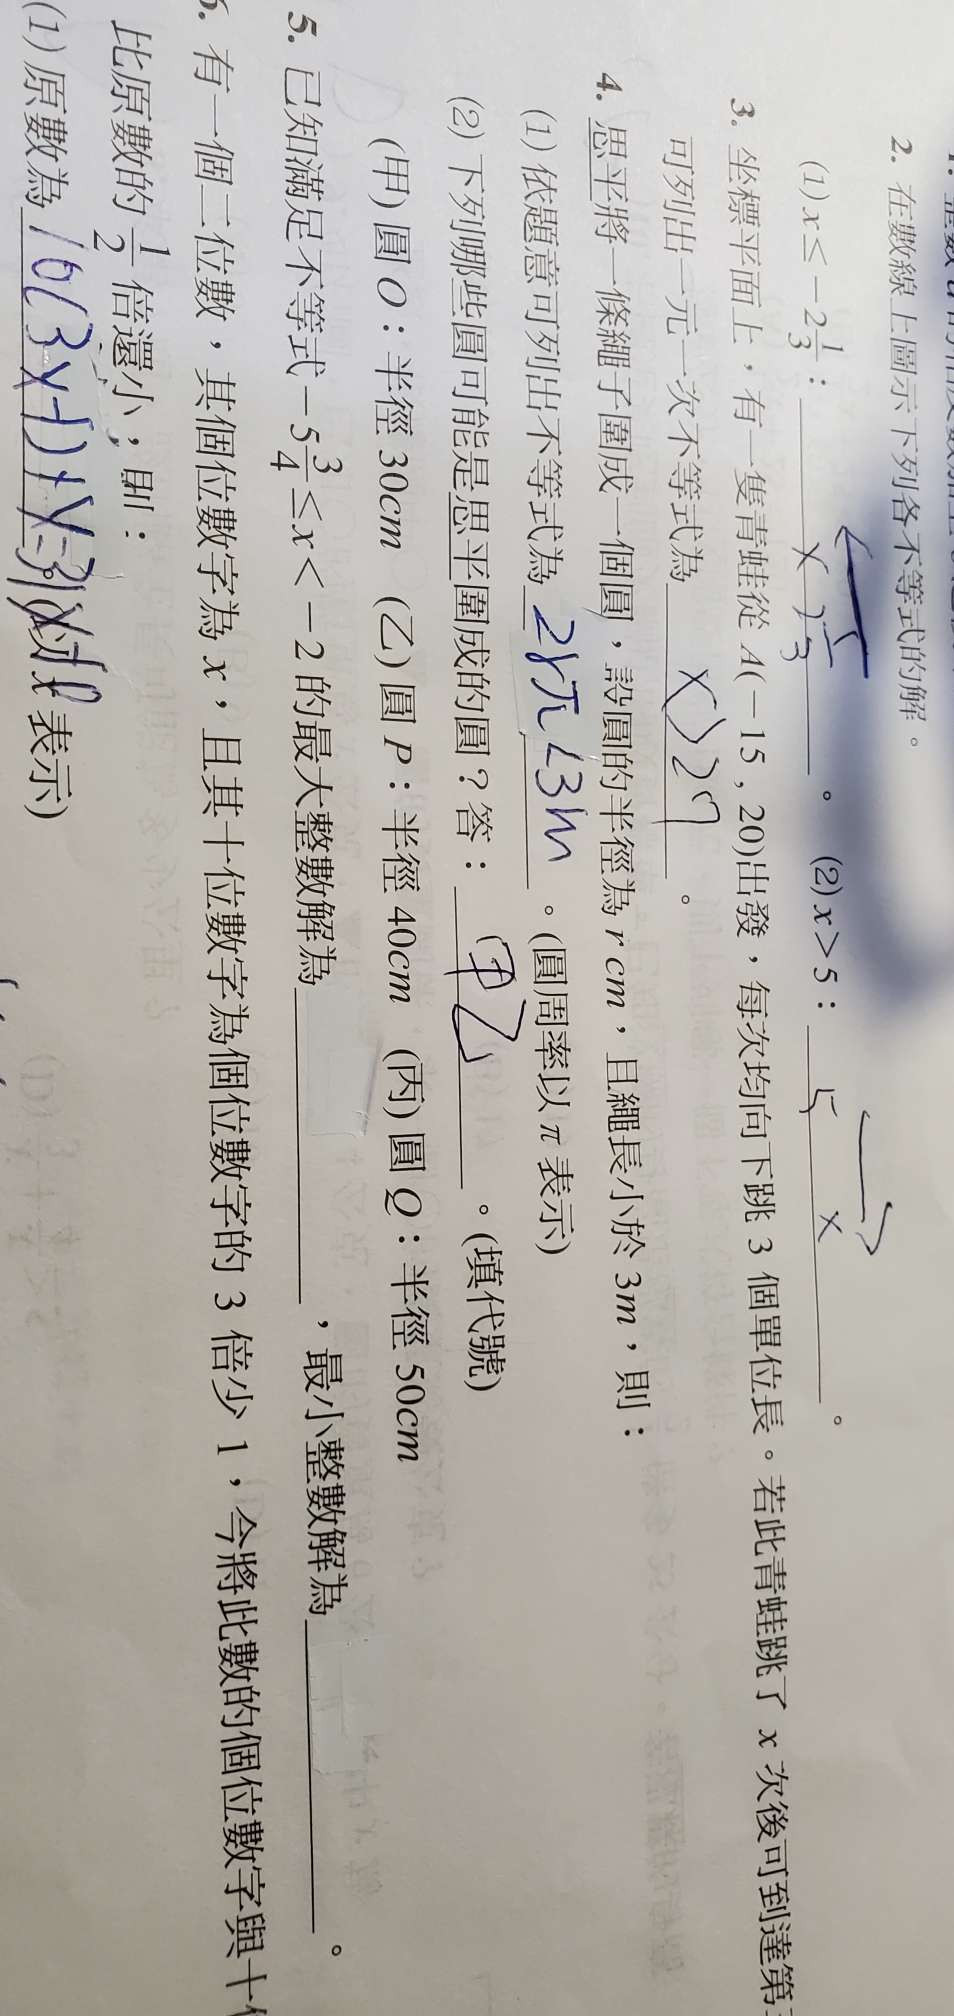 2. 在數線上圖示下列各不等式的解。
(1) x ≤ −2 1/3：。 (2) x > 5： 5 x 。
3. 坐標平面上，有一隻青蛙從 A(−15 , 20)出發，每次均向下跳 3 個單位長。若此青蛙跳了 x 次後可到達第
可列出一元一次不等式為 。
4. 思平將一條繩子圍成一個圓，設圓的半徑為 r cm，且繩長小於 3m，則：
(1) 依題意可列出不等式為 2rπ<3m 。(圓周率以 π 表示)
(2) 下列哪些圓可能是思平圍成的圓？答： 甲乙 。(填代號)
(甲) 圓 O：半徑 30cm (乙) 圓 P：半徑 40cm (丙) 圓 Q：半徑 50cm
5. 已知滿足不等式 −5 3/4 ≤ x < −2 的最大整數解為 ，最小整數解為 。
6. 有一個二位數，其個位數字為 x，且其十位數字為個位數字的 3 倍少 1，今將此數的個位數字與十
比原數的 1/2 倍還小，則：
(1) 原數為 表示)